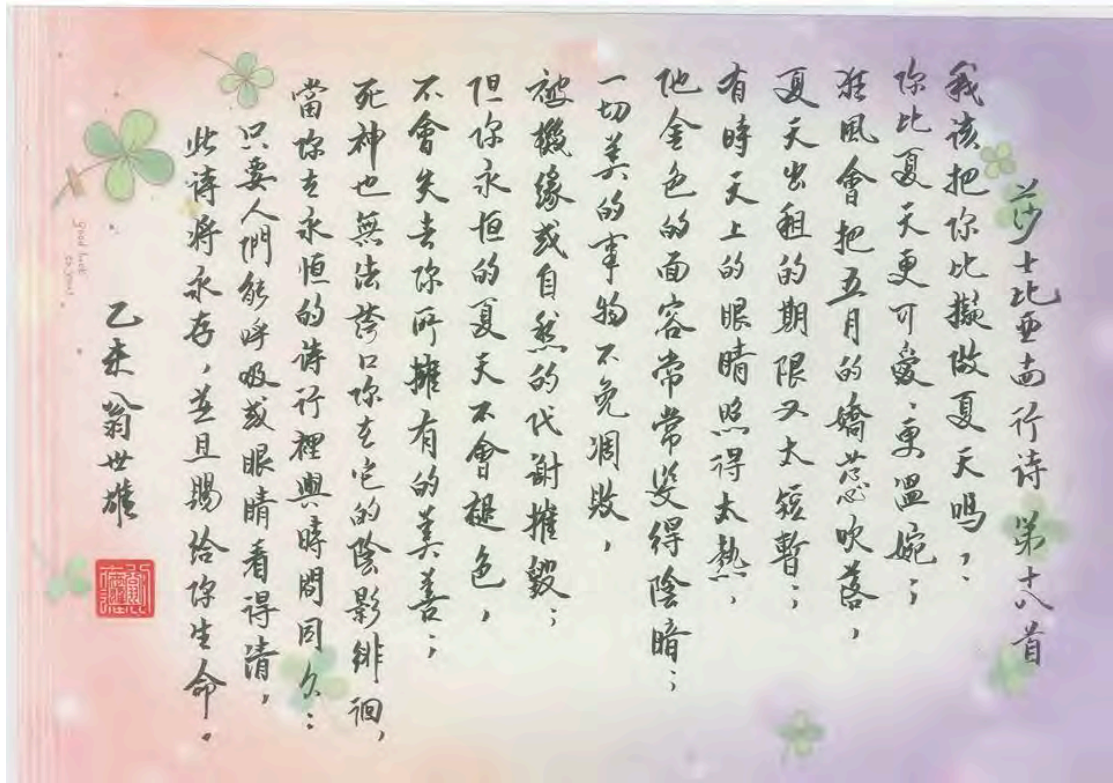 莎士比亞商行诗 第十八首
我该把你比擬做夏天嗎,:
你比夏天更可愛、更溫婉;
狂風會把五月的嬌蕊吹落,
夏天出租的期限又太短暫;
有時天上的眼睛照得太熱,
他金色的面容常常變得陰暗;
一切美的事物不免凋敗,
被機緣或自然的代谢摧毀;
但你永恒的夏天不會褪色,
不會失去你所擁有的美善;
死神也無法誇口你在它的陰影徘徊,
當你在永恒的诗行裡與時間同久:
只要人們能呼吸或眼睛看得清,
此诗將永存,並且賜给你生命。
乙未 翁世雄
Good luck
to you!